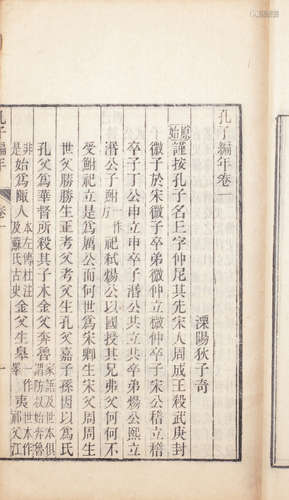 孔子編年卷一
溧陽狄子奇
原始
謹按孔子名丘字仲尼其先宋人周成王殺武庚封
微子於宋微子卒弟微仲立微仲卒子宋公稽立稽
卒子丁公申立申卒子湣公共立共卒弟煬公熙立
湣公子鮒祀弒煬公以國授其兄弗父何何不
受鮒祀立是爲厲公而何世爲宋卿生宋父周周生
世父勝勝生正考父考父生孔父嘉子孫因以爲氏
孔父爲華督所殺其子木金父奔魯
生睪夷父
始爲陬人
孔子編年
卷一
一